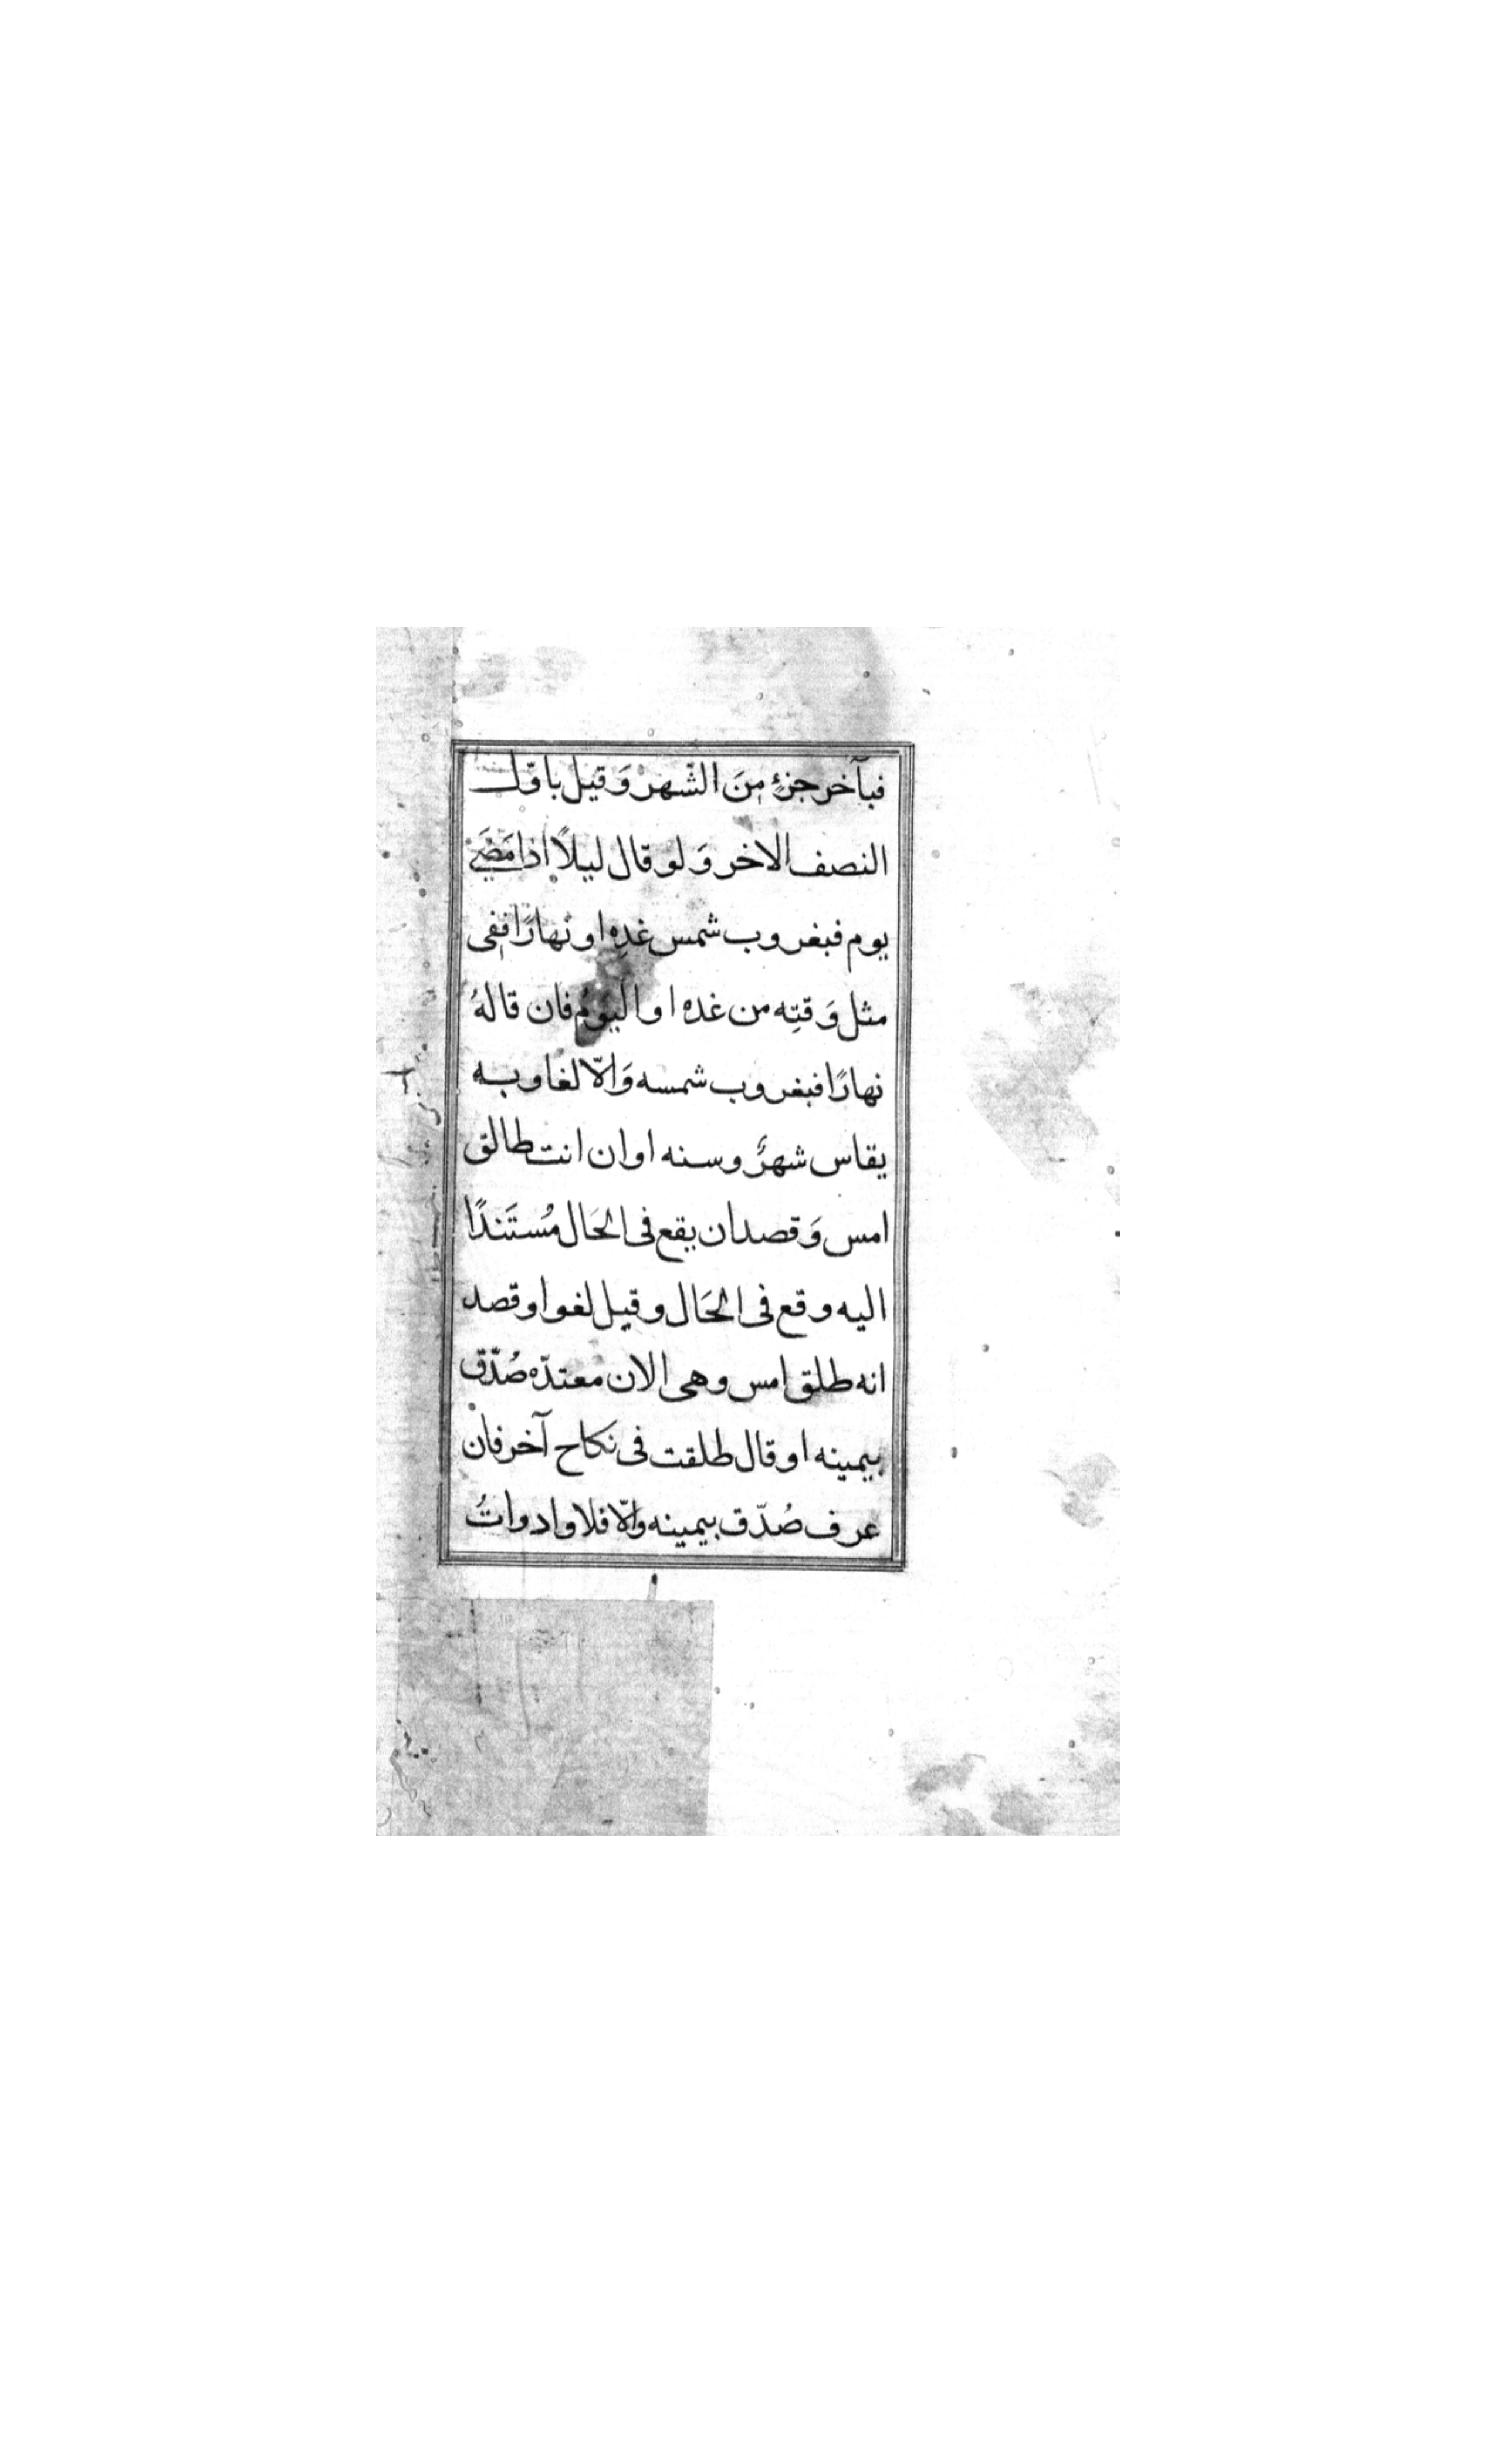 فبآخر جزءٍ مِنَ الشّهر وَقيل باوّل
النصف الاخر وَلو قال ليلًا اذا مَضَى
يوم فبغروب شمس غدِه او نهارًا ففى
مثل وَقتِه من غده او اليَومُ فان قالهُ
نهارًا فبغروب شمسه وَالّا لغا وبه
يقاس شهرٌ وسنه او ان انت طالق
امس وَقصد ان يقع فى الحَال مُستَندًا
اليه وقع فى الحَال وقيل لغوا وقصد
انه طلق امس وهى الان معتدّه صُدّق
بيمينه او قال طلقت فى نكاح آخر فان
عرف صُدّق بيمينه وَالّا فلا وادواتُ